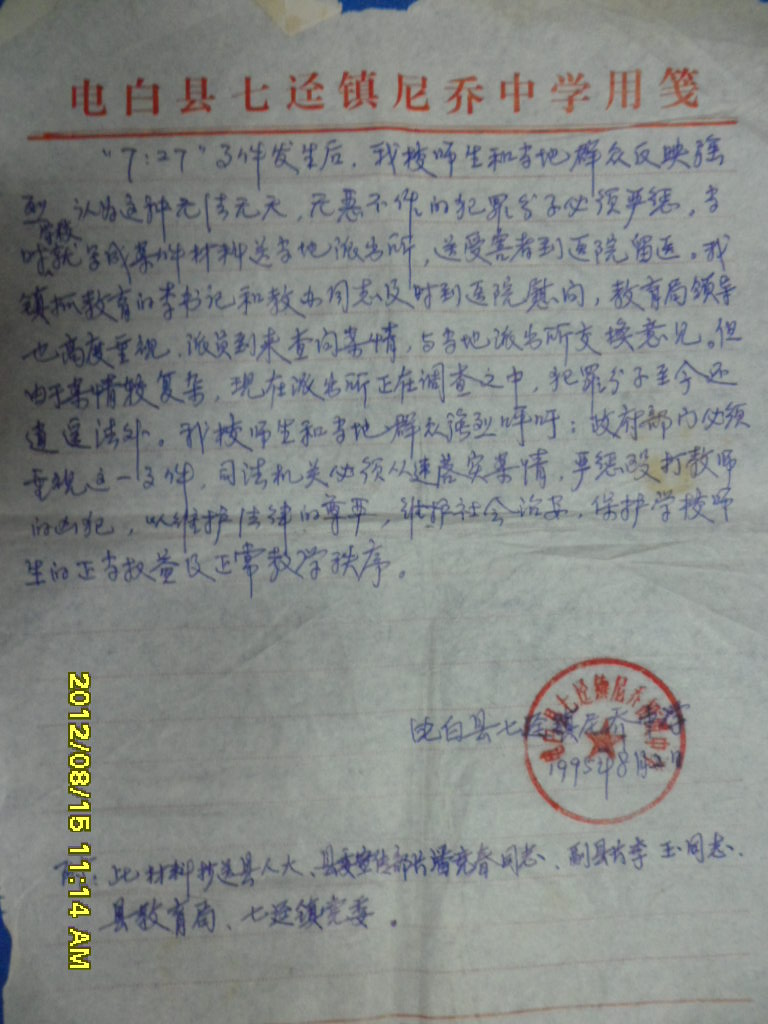 电白县七迳镇尼乔中学用笺
“7:27”事件发生后，我校师生和当地群众反映强
烈，认为这种无法无天，无恶不作的犯罪分子必须严惩，当
时学校就写成案件材料送当地派出所，送受害者到医院留医。我
镇抓教育的李书记和教办同志及时到医院慰问，教育局领导
也高度重视，派员到来查问案情，与当地派出所交换意见。但
由于案情较复杂，现在派出所正在调查之中，犯罪分子至今还
逍遥法外。我校师生和当地群众强烈呼吁：政府部门必须
重视这一事件，司法机关必须从速落实案情，严惩殴打教师
的凶犯，以维护法律的尊严，维护社会治安，保护学校师
生的正当权益及正常教学秩序。
电白县七迳镇尼乔中学
1995年8月2日
此材料抄送县人大、县委宣传部长潘 春同志、副县长李玉同志、
县教育局、七迳镇党委。
2012/08/15 11:14 AM